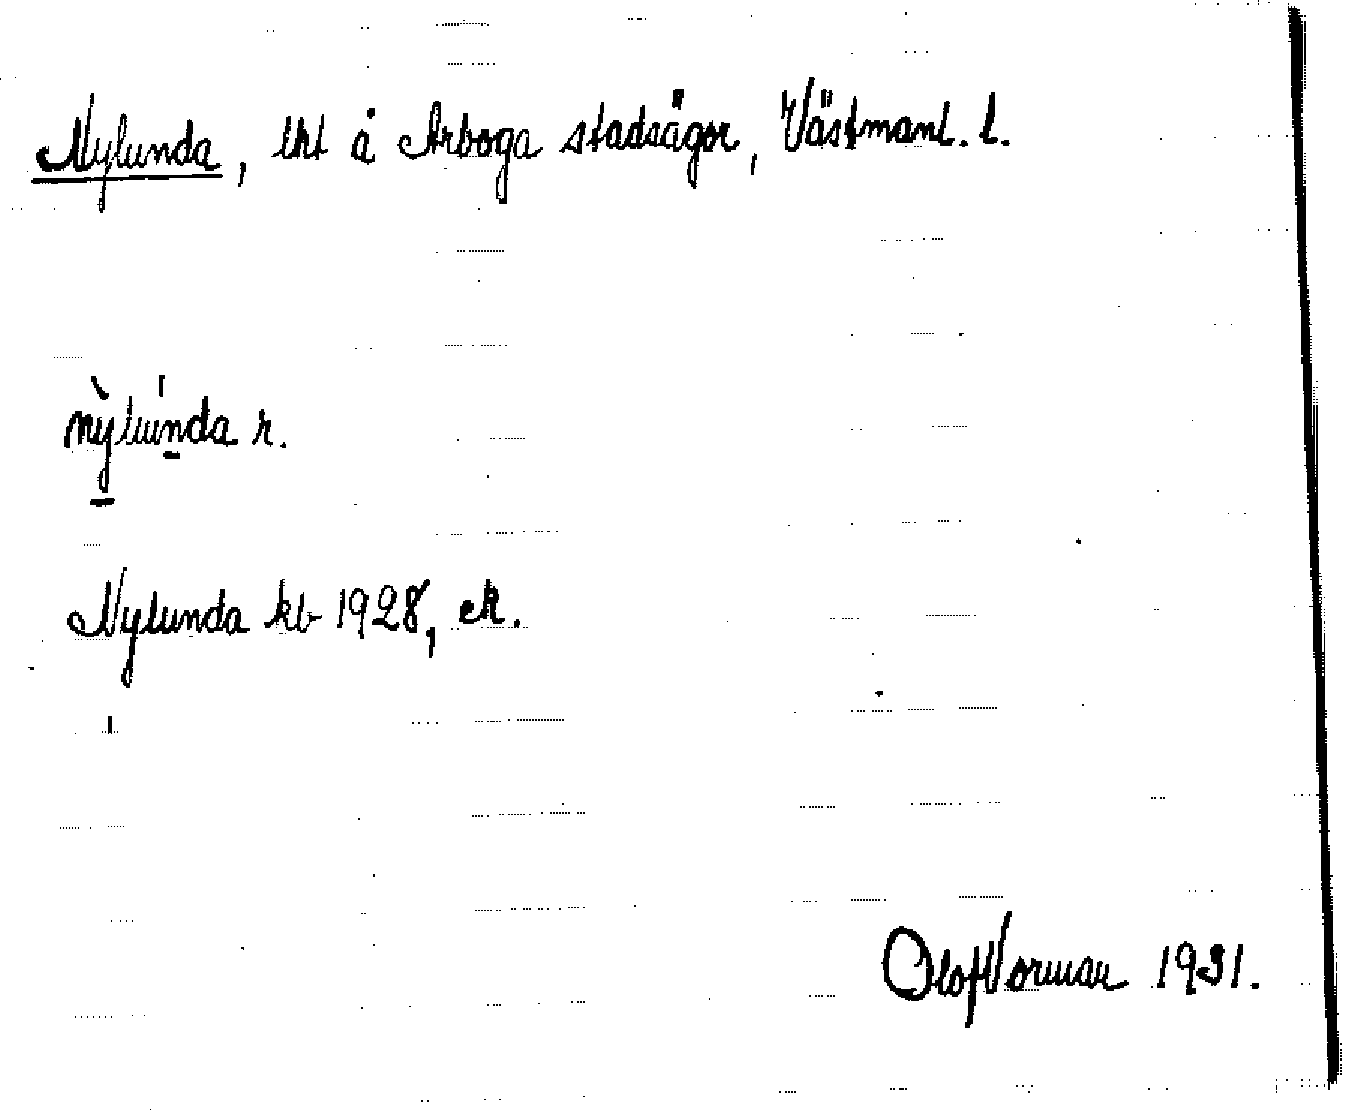 Nylunda, lht å Arboga stadsägor, Västmanl. l.
nỳlu̍nda r.
Nylunda kb 1928, ek.
Olof Vorman 1931.